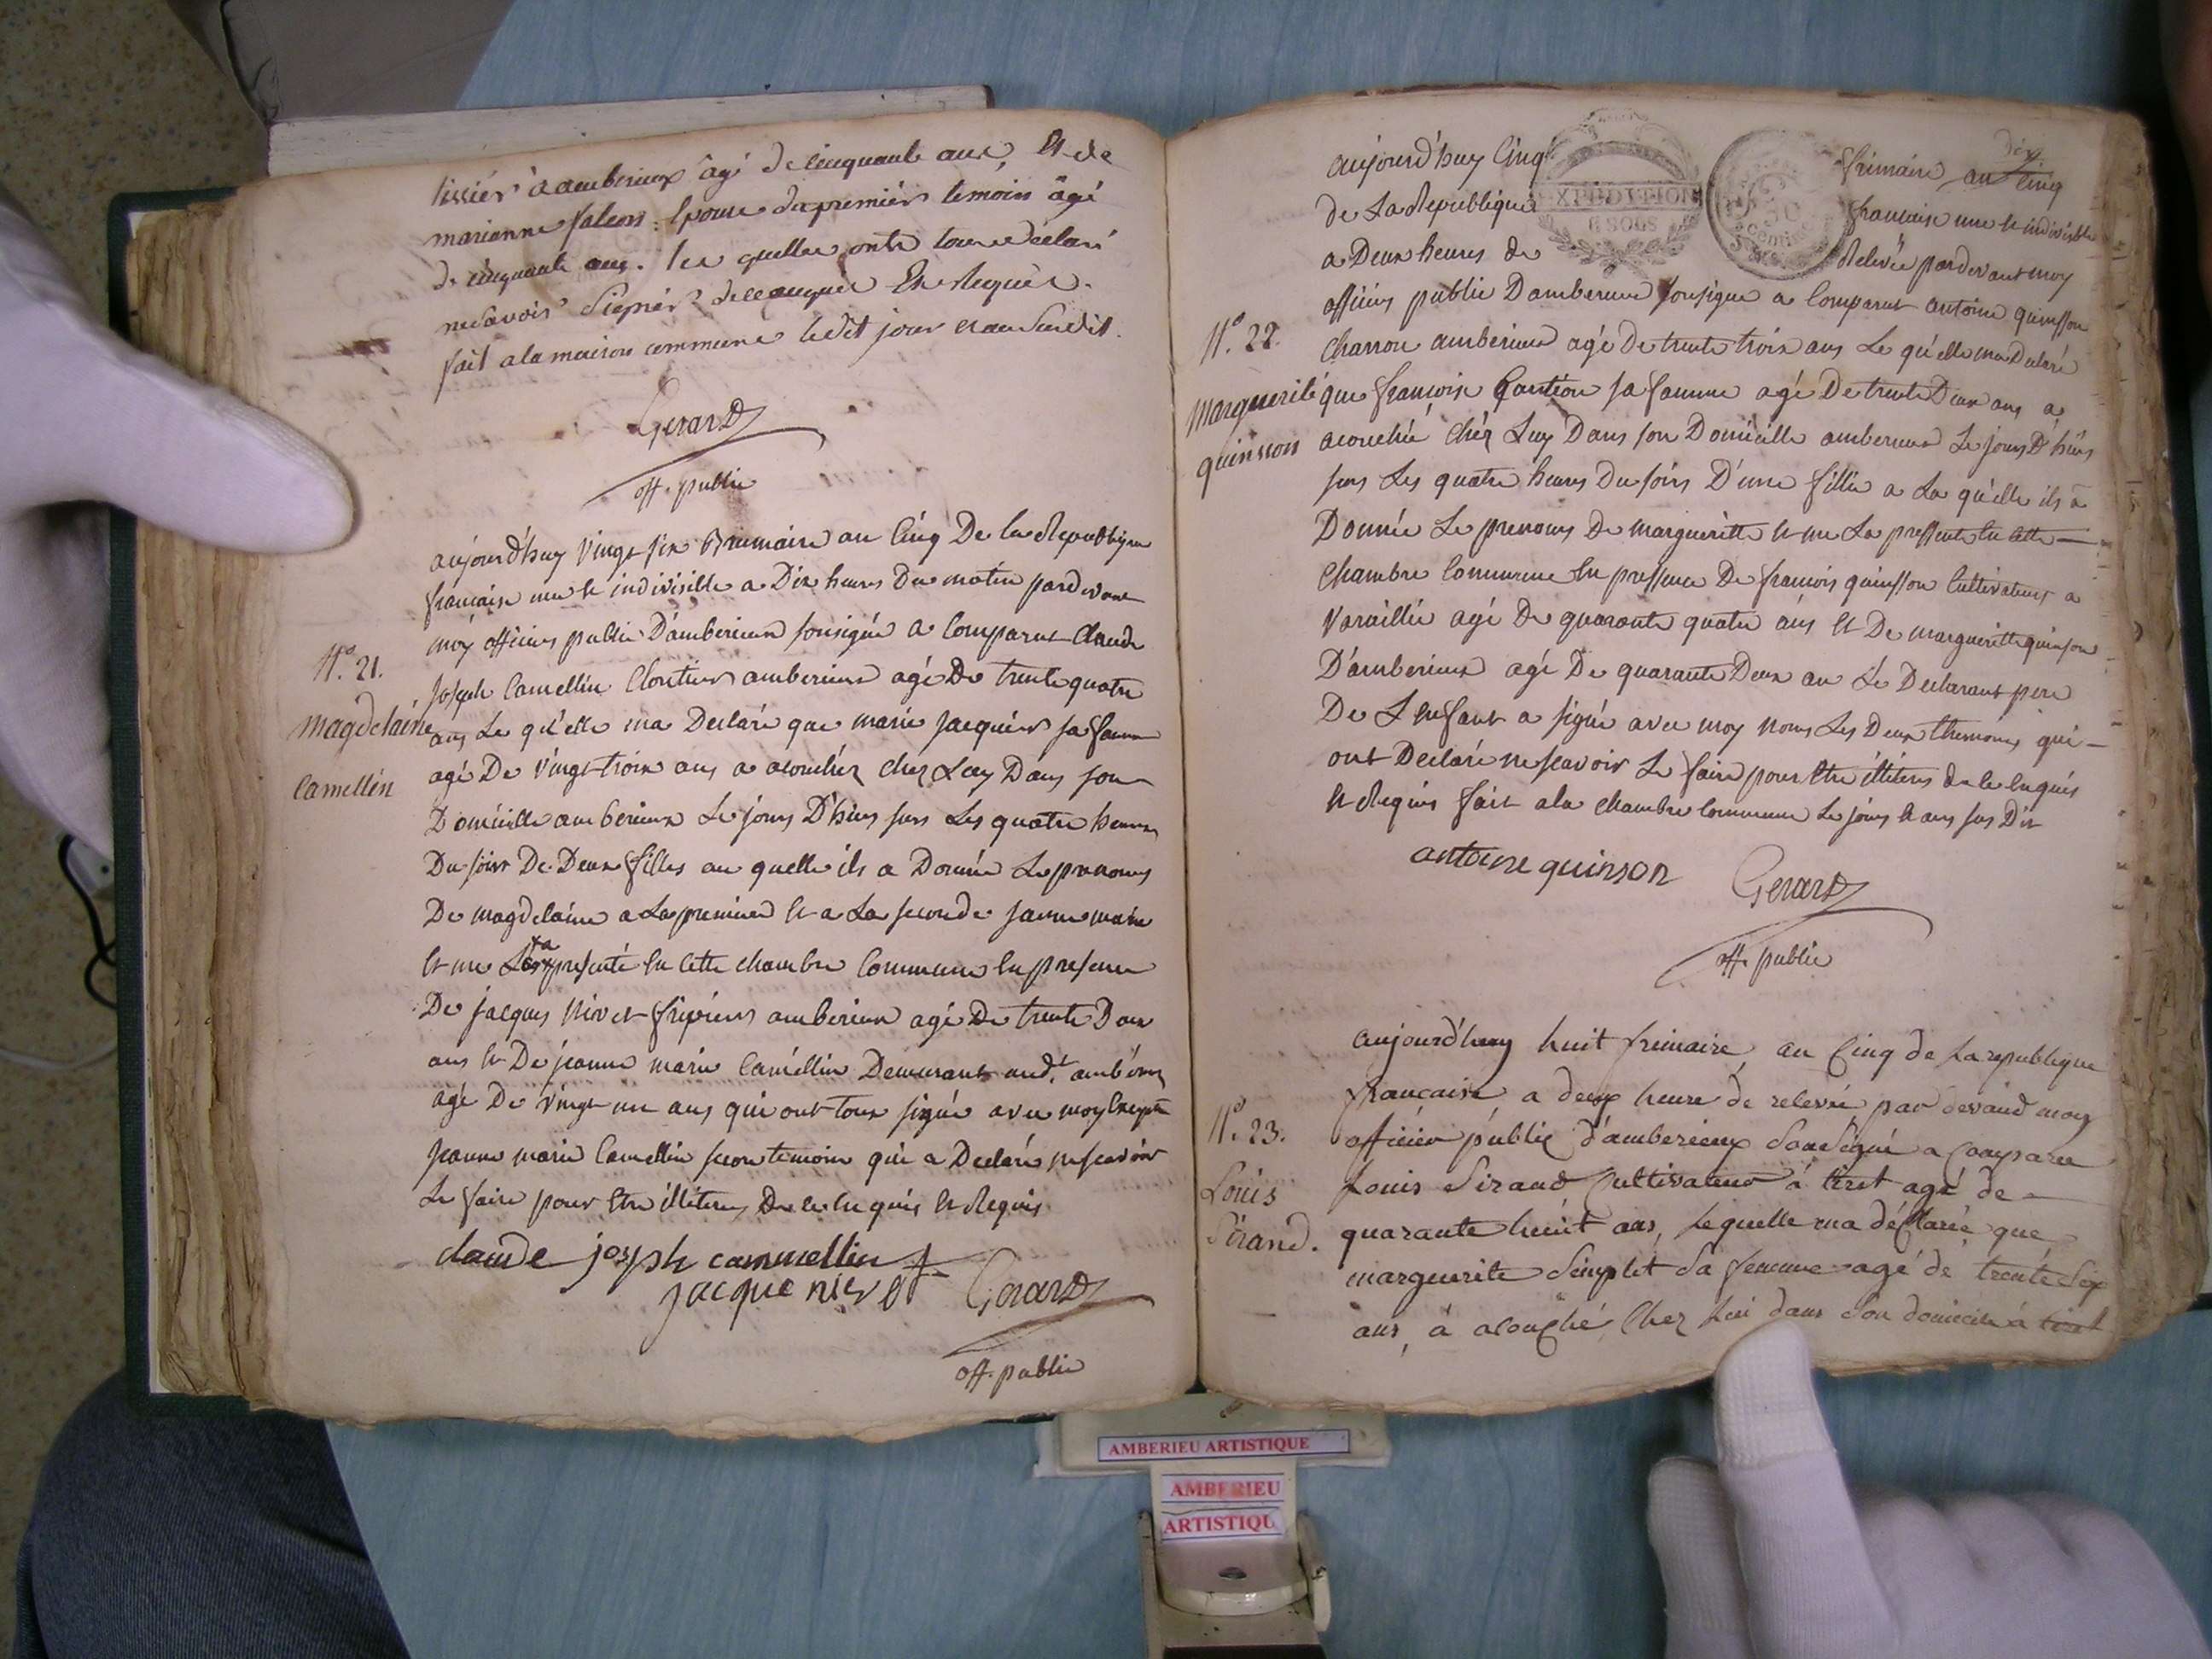 tissier a amberieux âgé de cinquante ans, Et de
marianne falcon Epouse du premier temoin âgé
de cinquante ans. les quelles onts tous declaré
ne savoir signér de ce enquis Et Requis.
fait a la maison commune ledit jour et an susdit.
Gerard
off. public
aujourd'huy Vingt six Brumaire an Cinq De la Republique
francaise une et indivisible a Dix heures Du matin pardevant
moy officier public D'amberieux sousigné a Comparut Claude
N.o 21.
Joseph Camellin Cloutier amberieux agé De trente quatre
magdelaine
ans Le qu'elle ma Declaré que marie jacquier sa famme
Camellin
agé De Vingt trois ans a acouchéz chez Luy Dans son
Domicille amberieux Le jours D'hiers sur Les quatre heures
Du soir De Deux filles au quelle ils a Donnée Le prenoms
De magdelaine a La premiere et a La seconde janne marie
et me Les a presenté En Cette chambre Commune En presence
De jacques Nivet fripiers amberieux agé De trente Deux
ans et De jeanne marie Camellin Demurant aud.t ambérieux
agé De Vingt un ans qui ont tous signé avec moy Excepté
jeanne marie Camellin secon temoin qui a Declaré ne scavoir
Le faire pour Etre illiterez De ce En quis et Requis
claude joseph cammellin
jacque nivet Gerard
off. public
dix
aujourd'huy Cinq frimaire an cinq
EXPEDITION
6 SOUS
de La Republique francaise une et indivisible
a Deux heures de Relevée pardevant moy
officier public D'amberieux sousigné a Comparut antoine quinsson
N.o 22.
Charron amberieux agé De trente trois ans Le qu'elle ma Declaré
Marguerite
que françoise sa famme agé De trente Deux ans a
quinsson
acouchée chéz Luy Dans son Domicille amberieux Le jours D'hiers
sur Les quatre heures Du soirs D'une fillie a La qu'elle ils a
Donnée Le prenoms De margueritte et me La pressenté En Cette
Chambre Commune En pressence De francois quinsson Cultivateur a
Vareillie agé De quarante quatre ans et De margueritte quinson
D'amberieux agé De quarante Deux an Le Declarant pere
De L'enfant a signé avec moy nons Les Deux themoins qui
ont Declaré ne scavoir Le faire pour Etre illiterez de ce Enquis
et Requis fait a la chambre Commune Le jours et ans sus Dit
antoine quinson Gerard
off. public
aujourd'huy huit frimaire an Cinq de La republique
francaise a deux heure de relevée par devand moy
N.o 23.
officier public d'amberieux Sousigné a Comparu
Louis
Louis Sirand Cultivateur à tiret agé de
Sirand.
quarante huit ans, Lequelle ma déclarée que
marguerite Simplet Sa femme agé de trente Six
ans, à acouché Chez Lui dans Son domicile à tiret